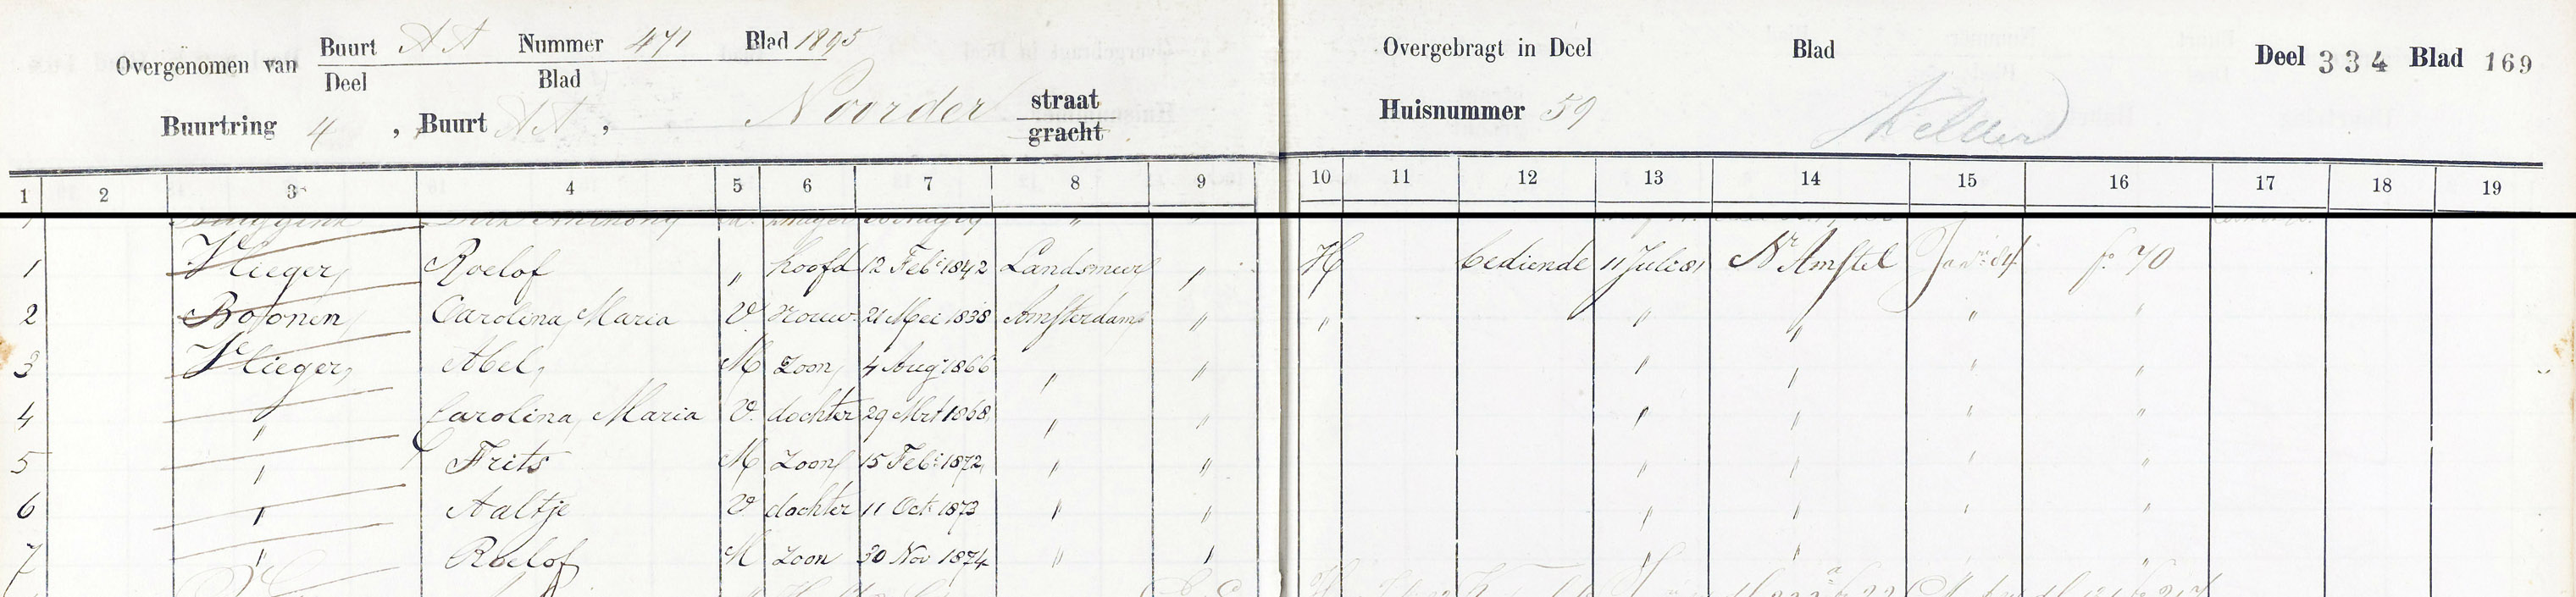 Overgenomen van Buurt AA Nummer 471 Blad 1895
Deel Blad
Buurtring 4, Buurt AA, Noorder straat
gracht
Overgebragt in Deel Blad Deel 334 Blad 169
Huisnummer 59 Kelder
1 2 3 4 5 6 7 8 9 10 11 12 13 14 15 16 17 18 19
1 Vlieger, Roelof " hoofd 12 Feb: 1842 Landsmeer " H bediende 11 Juli 81 Nr Amstel Janri 84 fo. 70
2 Boonen Carolina Maria V vrouw 21 Mei 1838 Amsterdam " " " " " "
3 Vlieger, Abel, M Zoon 4 Aug 1866 " " " " " "
4 " Carolina Maria V. dochter 29 Mrt 1868 " " " " " "
5 " Frits M Zoon 15 Feb: 1872 " " " " " "
6 " Aaltje V dochter 11 Oct 1873 " " " " " "
7 " Roelof M Zoon 30 Nov 1874 " " " " "